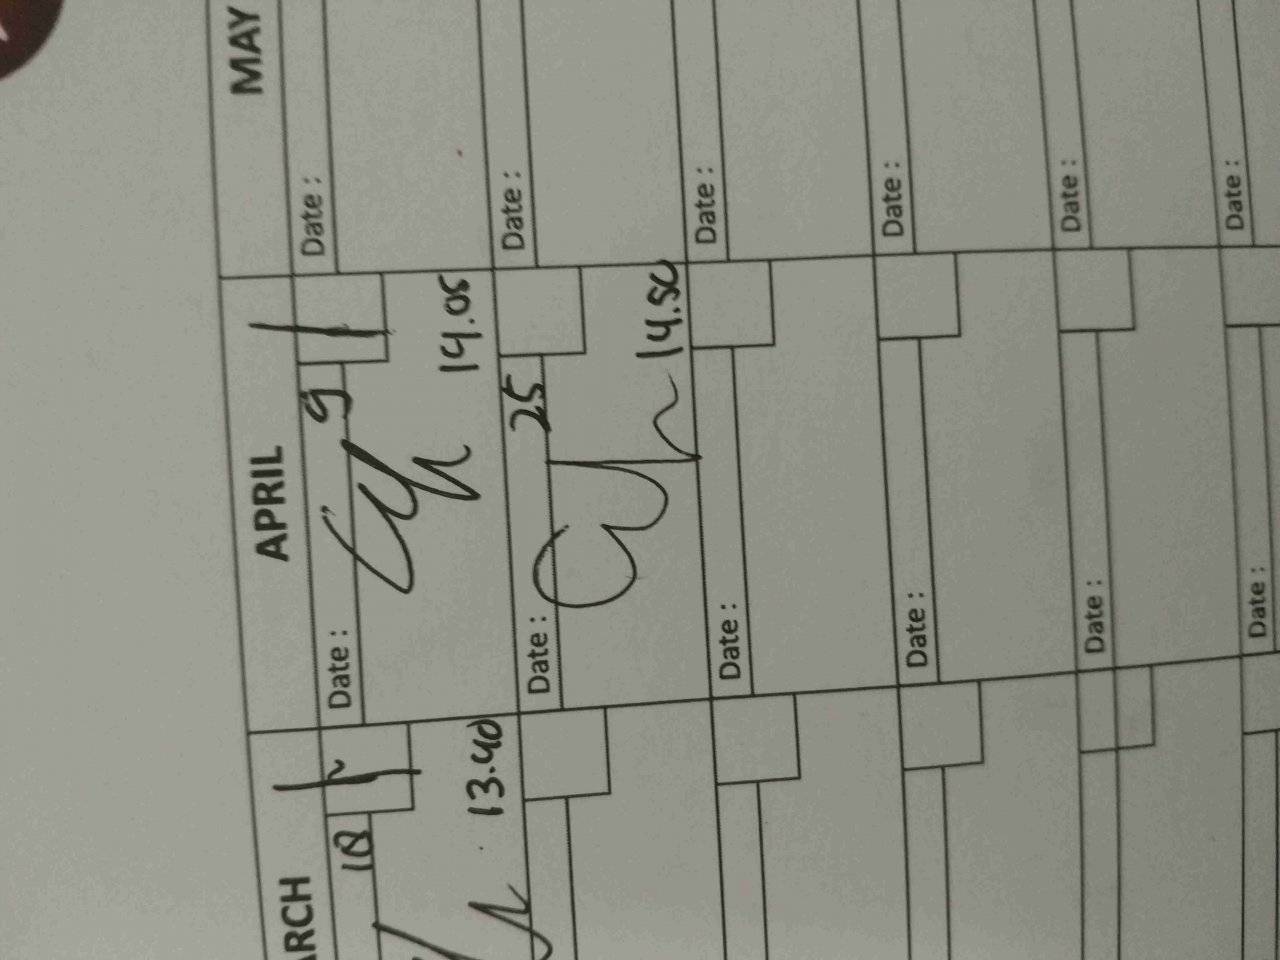 ARCH APRIL MAY
18 Date : 9 Date :
13.40 14.05
Date : 25 Date :
14.50
Date : Date :
Date : Date :
Date : Date :
Date : Date :